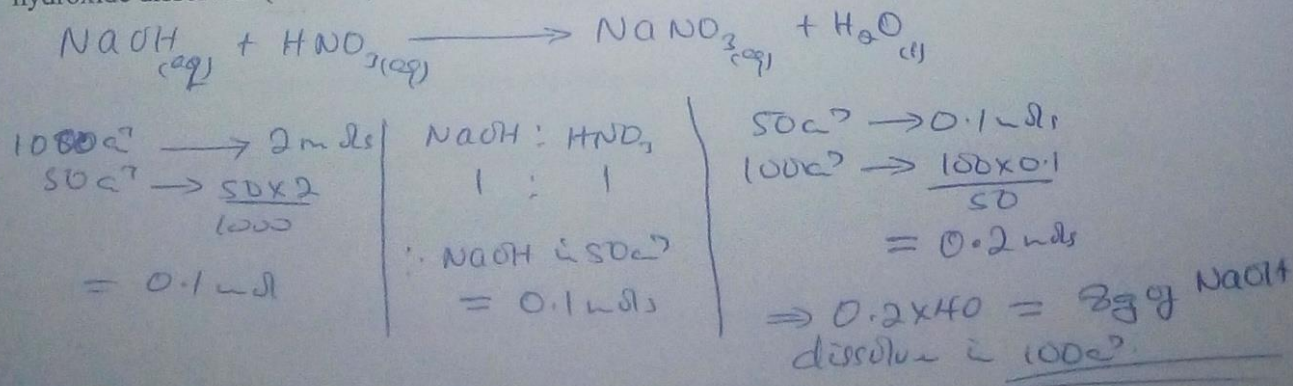 NaOH(aq) + HNO3(aq) → NaNO3(aq) + H2O(l)
1000c³ → 2mols
50c³ → 50×2
1000
= 0.1mol
NaOH : HNO3
1 : 1
∴ NaOH in 50c³
= 0.1mols
50c³ → 0.1mols
100c³ → 100×0.1
50
= 0.2mols
⇒ 0.2×40 = 8g of NaOH
dissolve in 100c³.